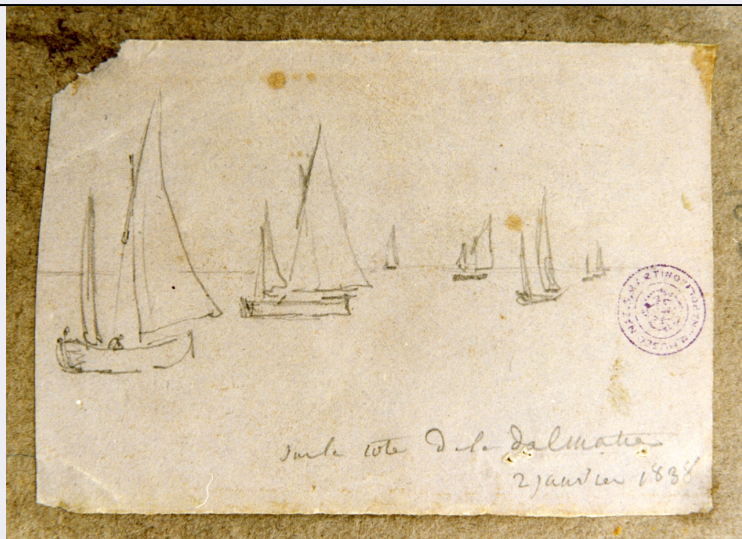 sur la cote De la Dalmatie
2 janvier 1838